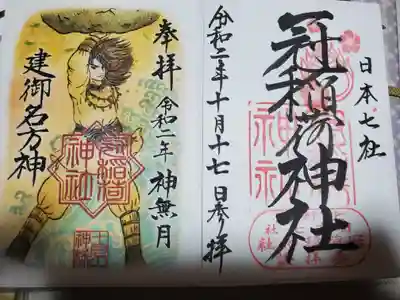 日本七社
冠稲荷神社
令和二年十月十七日参拝
奉拝 令和二年 神無月
建御名方神